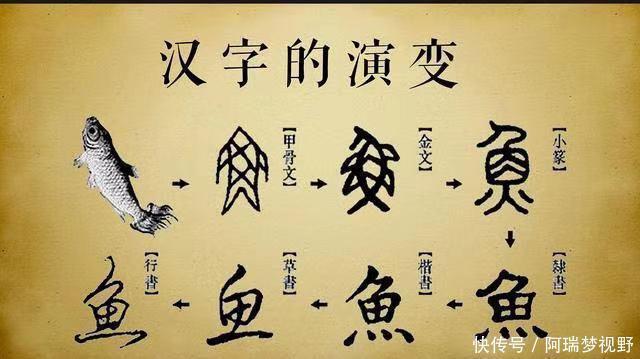 汉字的演变
【甲骨文】
【金文】
【小篆】
魚
【隸書】
魚
【楷書】
魚
【草書】
鱼
【行書】
魚
快传号/阿瑞梦视野